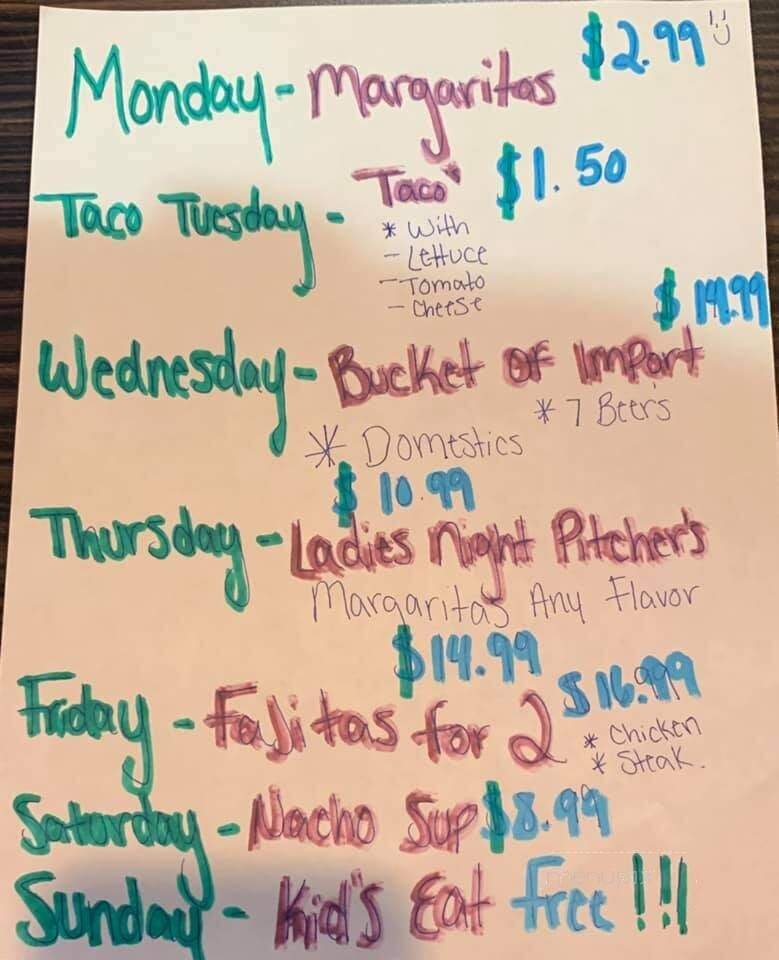 Monday - Margaritas $2.99
Taco Tuesday - Taco's $1.50
* With
- Lettuce
- Tomato
- Cheese
$19.99
Wednesday - Bucket of Import
* 7 Beers
* Domestics
$10.99
Thursday - Ladies Night Pitcher's
Margarita's Any Flavor
$14.99
Friday - Fajitas for 2 $16.99
* Chicken
* Steak.
Saturday - Nacho Sup $8.99
Sunday - Kid's Eat free !!!